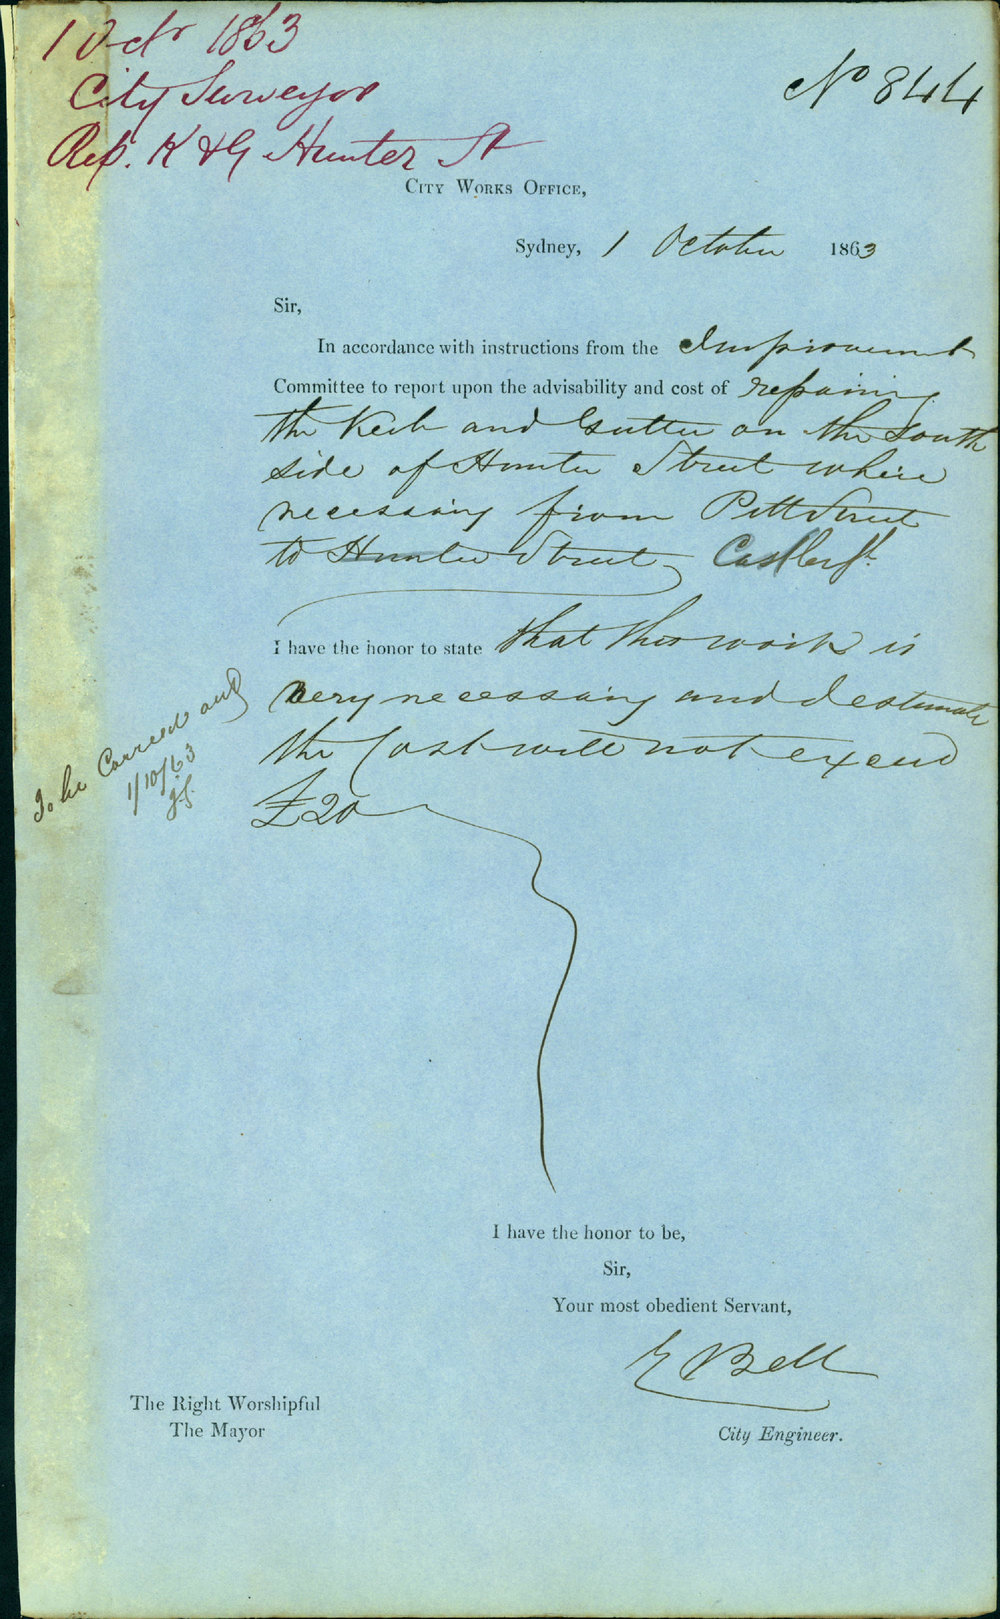 1 Octr 1863
City Surveyor
Rep. K & G Hunter St
No 844
City Works Office,
Sydney, 1 October 1863
Sir,
In accordance with instructions from the Improvement
Committee to report upon the advisability and cost of repairing
the Kerb and Gutter on the South
side of Hunter Street where
necessary from Pitt Street
to Hunter Street Castlereagh St.
I have the honor to state that this work is
very necessary and I estimate
the Cost will not exceed
£20
To be Carried out
1/10/63
I have the honor to be,
Sir,
Your most obedient Servant,
E Bell
The Right Worshipful
The Mayor
City Engineer.